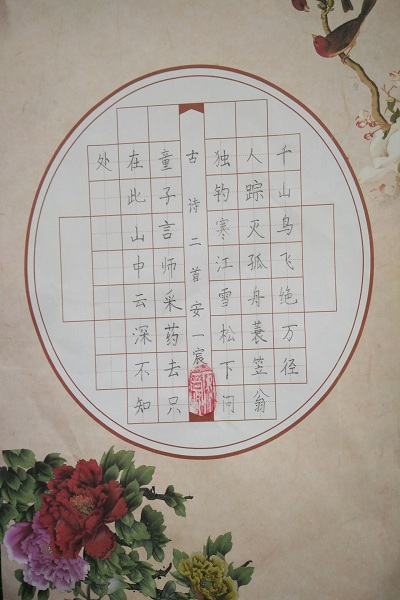 千山鸟飞绝万径
人踪灭孤舟蓑笠翁
独钓寒江雪松下问
古诗二首安一宸
童子言师采药去只
在此山中云深不知
处